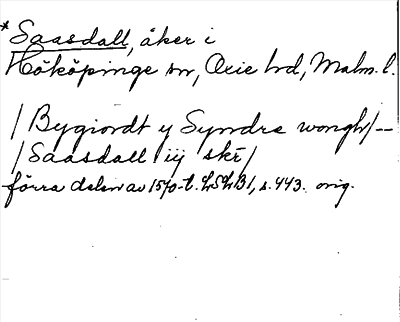 *Saasdall, åker i
Hököpinge sn, Oxie hd, Malm. l.
/Bygiordt y Syndre wongh/--
/Saasdall iij skr/
förra delen av 1570-t. LSLB1, s. 443. orig.